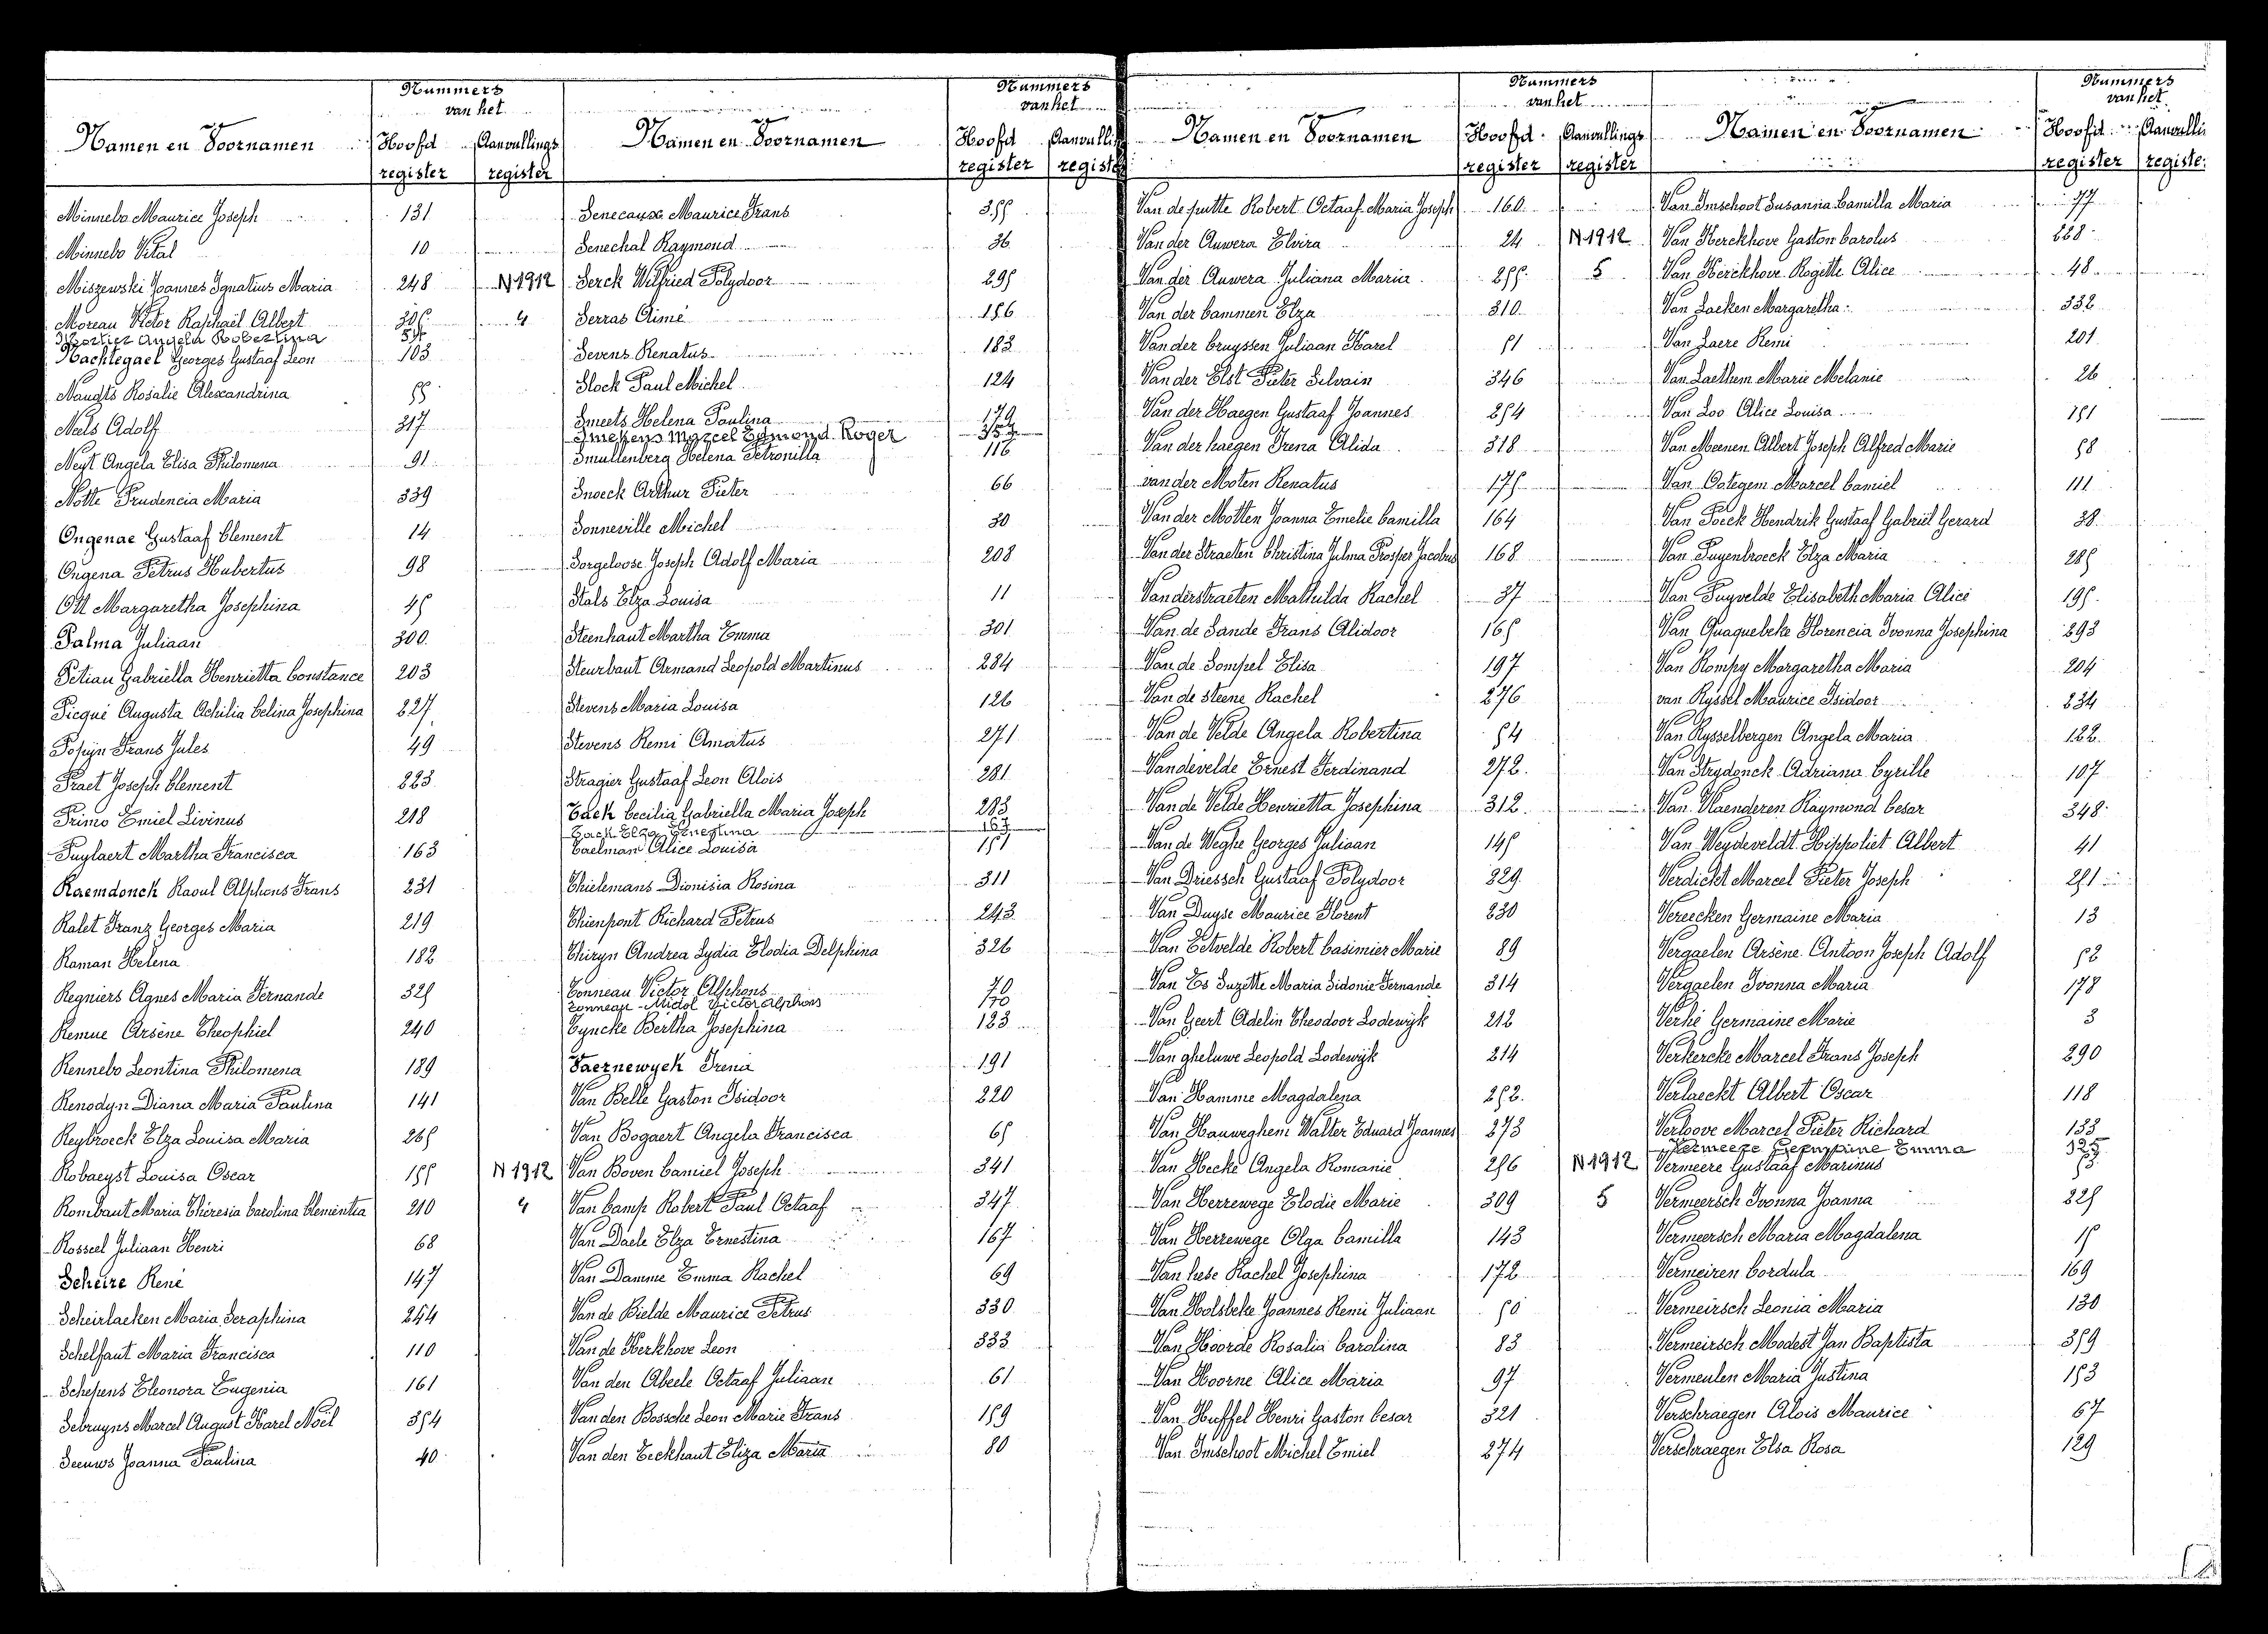 Nummers
van het
Namen en Voornamen Hoofd Aanvullings
register register
Minnebo Maurice Joseph 131
Minnebo Vital 10
Miszewski Joannes Ignatius Maria 248
Moreau Victor Raphaël Albert
Mortier Angela Robertina
Nachtegael Georges Gustaaf Leon 103
Naudts Rosalie Alexandrina 55
Neels Adolf 317
Neyt Angela Elisa Philomena 91
Notte Prudencia Maria 339
Ongenae Gustaaf Clement 14
Ongena Petrus Hubertus 98
Ott Margaretha Josephina 45
Palma Juliaan 300
Petiau Gabriella Henrietta Constance 203
Picqué Augusta Achilia Celina Josephina 227
Posijn Frans Jules 49
Praet Joseph Clement 223
Primo Emiel Livinus 218
Puylaert Martha Francisca 163
Raemdonck Raoul Alphons Frans 231
Ralet Franz Georges Maria 219
Raman Helena 182
Regniers Agnes Maria Fernande 325
Remue Arsène Theophiel 240
Rennebo Leontina Philomena 189
Renodyn Diana Maria Paulina 141
Reybroeck Elza Louisa Maria 265
Robaeyst Louisa Oscar 155
Rombaut Maria Theresia Carolina Clementia 210
Rosseel Juliaan Henri 68
Scheire René 147
Scheirlaeken Maria Seraphina 254
Schelfaut Maria Francisca 110
Schepens Eleonora Eugenia 161
Sebruyns Marcel August Karel Noël 354
Seeuws Joanna Paulina 40
Nummers
van het
Namen en Voornamen Hoofd Aanvulli
register registe
Senecause Maurice Frans 355
Senechal Raymond 36
N 1912 Serck Wilfried Polydoor 295
4 Serras Aimé 156
Sevens Renatus 183
Slock Paul Michel 124
Smeets Helena Paulina 179
Smekens Marcel Edmond Roger
Smullenberg Helena Petronilla 116
Snoeck Arthur Pieter 66
Sonneville Michel 30
Sorgeloose Joseph Adolf Maria 208
Stals Elza Louisa 11
Steenhaut Martha Emma 301
Steurbaut Armand Leopold Martinus 284
Stevens Maria Louisa 126
Stevens Remi Amatus 271
Stragier Gustaaf Leon Alois 281
Tack Cecilia Gabriella Maria Joseph 283
Tack Elza Ernestina 167
Taelman Alice Louisa 151
Thielemans Dionisia Rosina 311
Thienpont Richard Petrus 243
Thiryn Andrea Lydia Elodia Delphina 326
Tonneau Victor Alphons 70
Tonneau-Midol Victor Alphons 170
Tyncke Bertha Josephina 123
Vaernewyck Irena 191
Van Belle Gaston Isidoor 220
Van Bogaert Angela Francisca 65
N 1912 Van Boven Camiel Joseph 341
4 Van Camp Robert Paul Octaaf 347
Van Daele Elza Ernestina 167
Van Damme Emma Rachel 69
Van de Bielde Maurice Petrus 330
Van de Kerkhove Leon 333
Van den Abeele Octaaf Juliaan 61
Van den Bossche Leon Marie Frans 159
Van den Eeckhaut Eliza Maria 80
Nummers
van het
Namen en Voornamen Hoofd Aanvullings
register register
Van de putte Robert Octaaf Maria Joseph 160
Van der Auwera Elvira 24
Van der Auwera Juliana Maria 255
Van der Cammen Elza 310
Van der Cruyssen Juliaan Karel 51
Van der Elst Pieter Silvain 346
Van der Haegen Gustaaf Joannes 254
Van der haegen Irena Alida 318
van der Moten Renatus 175
Van der Motten Joanna Emelie Camilla 164
Van der Straeten Christina Julma Prosper Jacobus 168
Vanderstraeten Mathilda Rachel 37
Van de Sande Frans Alidoor 165
Van de Sompel Elisa 197
Van de steene Rachel 276
Van de Velde Angela Robertina 54
Vandevelde Ernest Ferdinand 272
Van de Velde Henrietta Josephina 312
Van de Weghe Georges Juliaan 145
Van Driessch Gustaaf Polydoor 329
Van Duyse Maurice Florent 230
Van Eetvelde Robert Casimier Marie 89
Van Es Suzette Maria Sidonie Fernande 314
Van Geert Adelin Theodoor Lodewijk 212
Van gheluwe Leopold Lodewijk 214
Van Hamme Magdalena 252
Van Hauweghem Walter Eduard Joannes 273
Van Hecke Angela Romanie 256
Van Herrewege Elodie Marie 309
Van Herrewege Olga Camilla 143
Van hese Rachel Josephina 172
Van Holsbeke Joannes Remi Juliaan 50
Van Hoorde Rosalia Carolina 83
Van Hoorne Alice Maria 97
Van Huffel Henri Gaston Cesar 321
Van Imschoot Michel Emiel 274
Nummers
van het
Namen en Voornamen Hoofd Aanvulli
register registe
Van Imschoot Susanna Camilla Maria 77
N 1912 Van Kerckhove Gaston Carolus 228
5 Van Kerckhove Rogette Alice 48
Van Laeken Margaretha 332
Van Laere Remi 201
Van Laethem Marie Melanie 26
Van Loo Alice Louisa 151
Van Meenen Albert Joseph Alfred Marie 58
Van Ootegem Marcel Camiel 111
Van Poeck Hendrik Gustaaf Gabriël Gerard 38
Van Puyenbroeck Elza Maria 285
Van Puyvelde Elisabeth Maria Alice 195
Van Quaquebeke Florencia Ivonna Josephina 293
Van Rompy Margaretha Maria 204
van Ryssel Maurice Isidoor 234
Van Rysselbergen Angela Maria 122
Van Strydonck Adriana Cyrille 107
Van Vlaenderen Raymond Cesar 348
Van Weydeveldt Hippoliet Albert 41
Verdickt Marcel Pieter Joseph 251
Vereecken Germaine Maria 13
Vergaelen Arsène Antoon Joseph Adolf 52
Vergaelen Ivonna Maria 178
Verhé Germaine Marie 3
Verkercke Marcel Frans Joseph 290
Verlaeckt Albert Oscar 118
Verloove Marcel Pieter Richard 133
Vermeere Germaine Emma
N 1912 Vermeere Gustaaf Marinus
5 Vermeersch Ivonna Joanna 225
Vermeersch Maria Magdalena 15
Vermeiren Cordula 169
Vermeirsch Leonia Maria 130
Vermeirsch Modest Jan Baptista 359
Vermeulen Maria Justina 153
Verschraegen Alois Maurice 67
Verschraegen Elsa Rosa 129